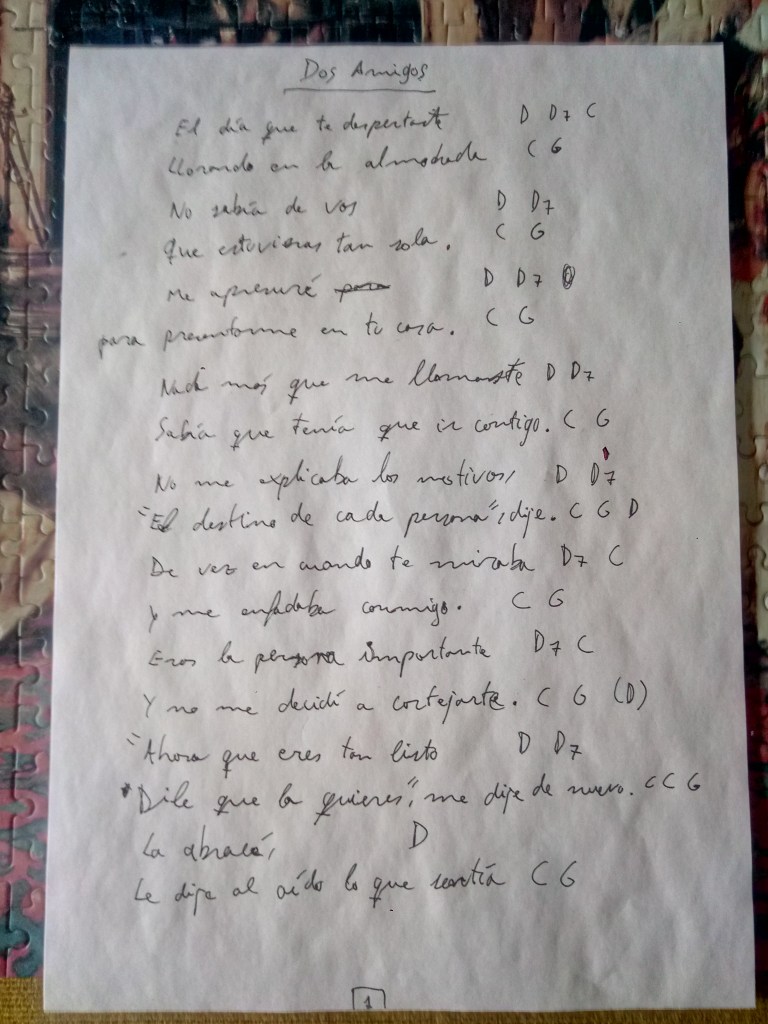 Dos Amigos
El día que te despertaste D D7 C
Llorando en la almohada C G
No sabía de vos D D7
Que estuvieras tan sola. C G
Me apresuré para D D7
para presentarme en tu casa. C G
Nada más que me llamaste D D7
Sabía que tenía que ir contigo. C G
No me explicaba los motivos, D D7
"El destino de cada persona", dije. C G D
De vez en cuando te miraba D7 C
Y me enfadaba conmigo. C G
Eras la persona importante D7 C
Y no me decidí a cortejarte. C G (D)
"Ahora que eres tan listo D D7
"Dile que la quieres", me dije de nuevo. C C G
La abracé, D
Le dije al oído lo que sentía C G
1